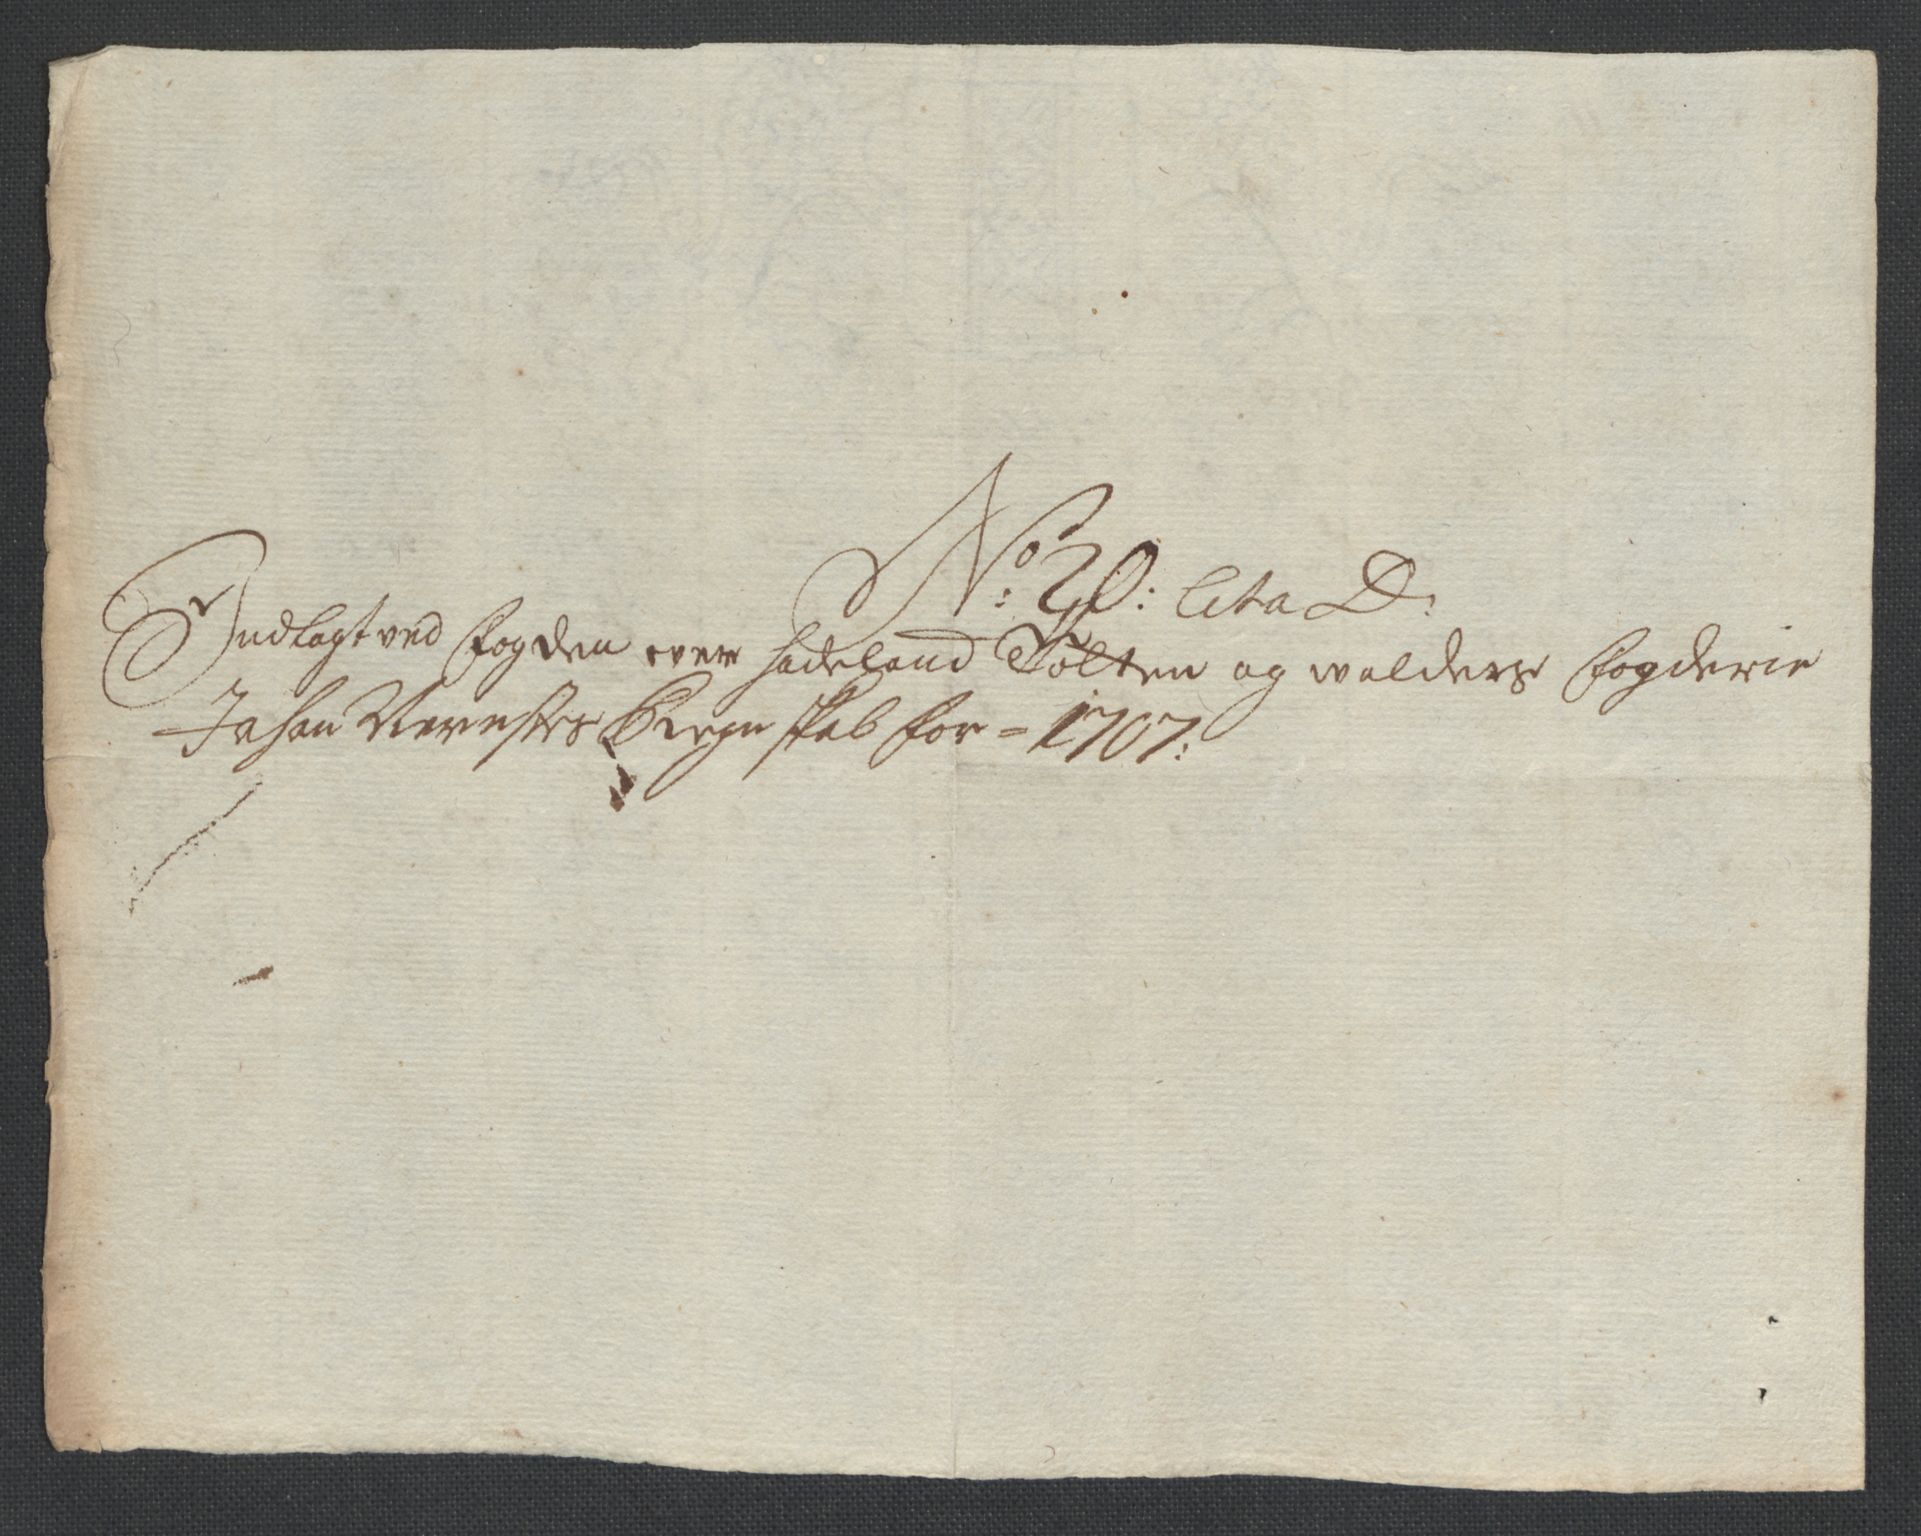 No: 20: Litra D:
Indlagt ved fogden over Hadeland Tolten og walders fogderie
Johan Regnskab for - 1707: